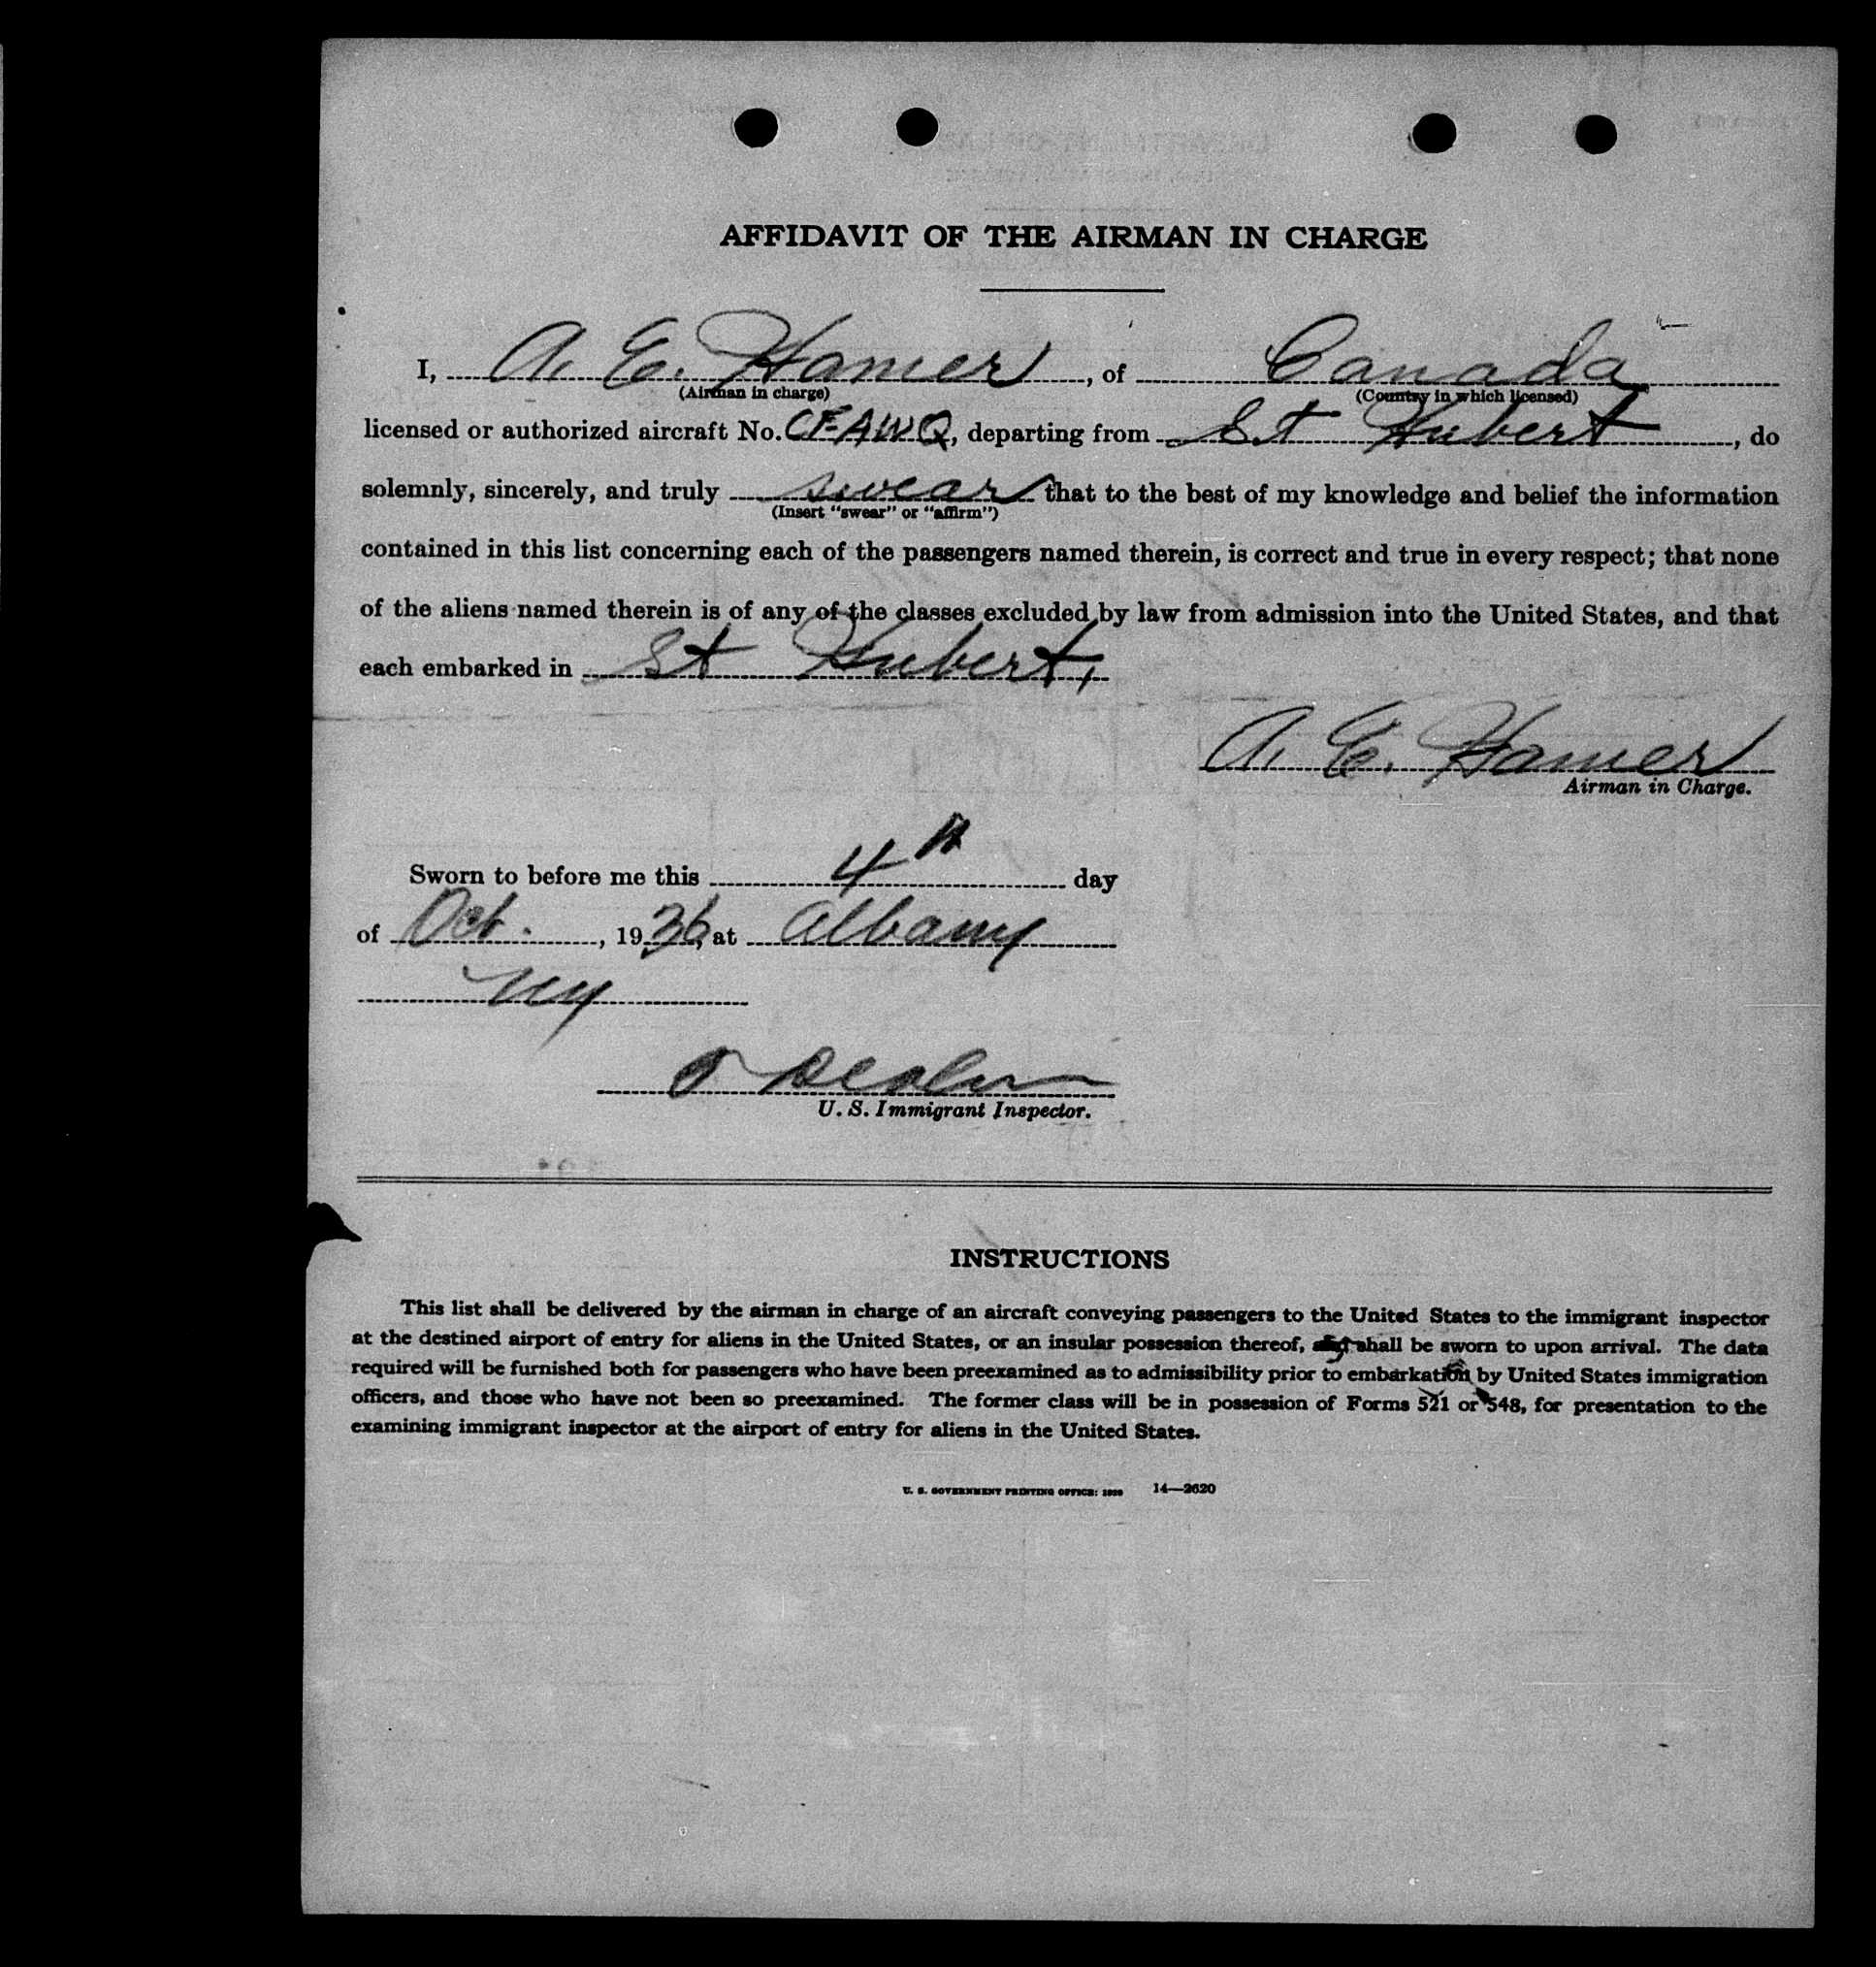 AFFIDAVIT OF THE AIRMAN IN CHARGE
I, A. E. Hamer, of Canada
(Airman in charge) (Country in which licensed)
licensed or authorized aircraft No. CF-AWQ, departing from St Hubert, do
solemnly, sincerely, and truly swear that to the best of my knowledge and belief the information
(Insert "swear" or "affirm")
contained in this list concerning each of the passengers named therein, is correct and true in every respect; that none
of the aliens named therein is of any of the classes excluded by law from admission into the United States, and that
each embarked in St Hubert,
A. E. Hamer
Airman in Charge.
Sworn to before me this 4th day
of Oct., 1936, at Albany
NY
U. S. Immigrant Inspector.
INSTRUCTIONS
This list shall be delivered by the airman in charge of an aircraft conveying passengers to the United States to the immigrant inspector
at the destined airport of entry for aliens in the United States, or an insular possession thereof, and shall be sworn to upon arrival. The data
required will be furnished both for passengers who have been preexamined as to admissibility prior to embarkation by United States immigration
officers, and those who have not been so preexamined. The former class will be in possession of Forms 521 or 548, for presentation to the
examining immigrant inspector at the airport of entry for aliens in the United States.
U. S. GOVERNMENT PRINTING OFFICE: 14—2620